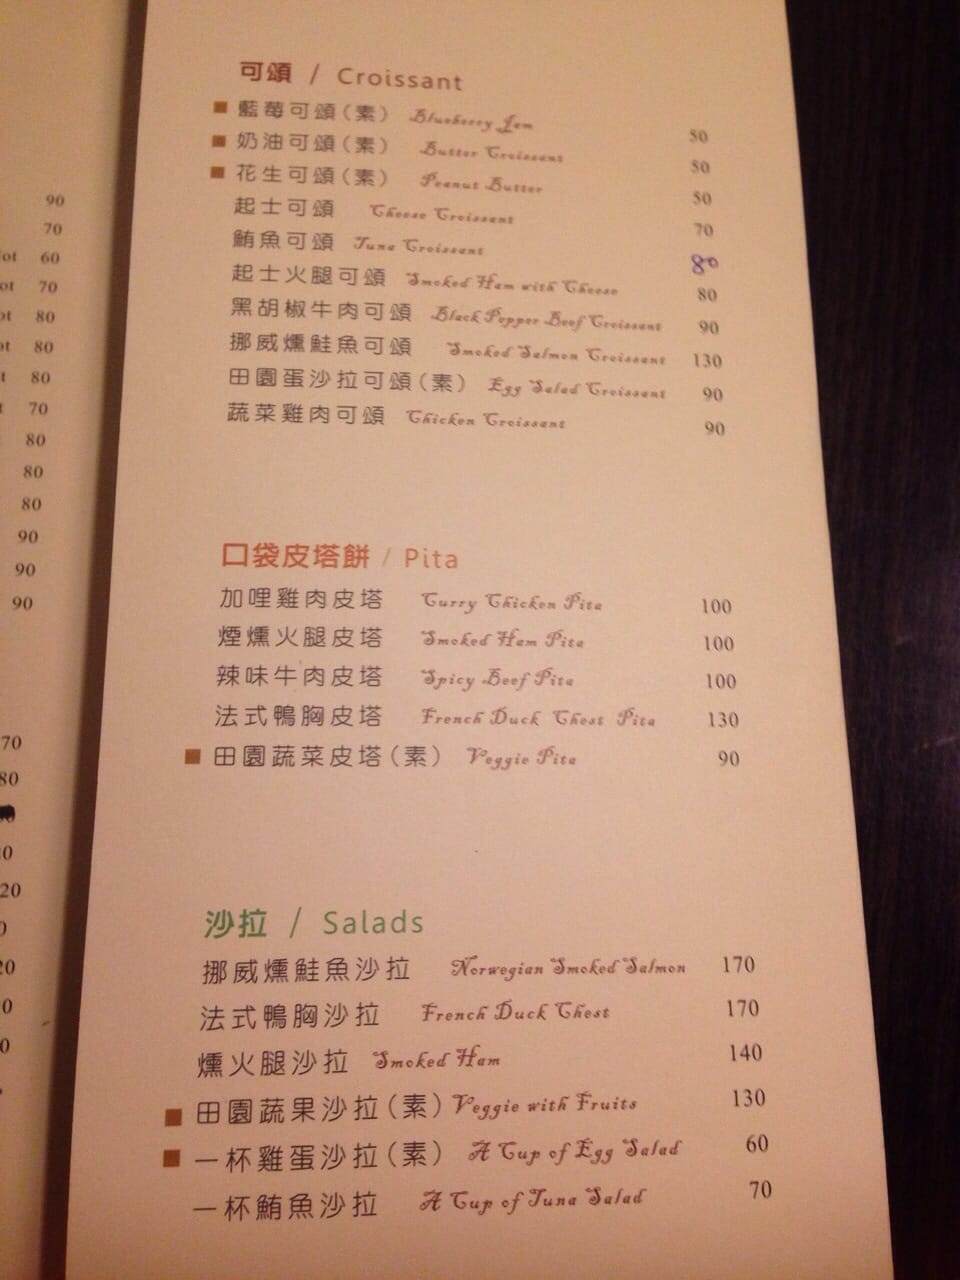 90
70
ot 60
ot 70
ot 80
ot 80
t 80
70
80
80
80
90
90
90
70
80
20
20
可頌 / Croissant
■ 藍莓可頌(素) Blueberry Jam 50
■ 奶油可頌(素) Butter Croissant 50
■ 花生可頌(素) Peanut Butter 50
起士可頌 Cheese Croissant 70
鮪魚可頌 Tuna Croissant 80
起士火腿可頌 Smoked Ham with Cheese 80
黑胡椒牛肉可頌 Black Pepper Beef Croissant 90
挪威燻鮭魚可頌 Smoked Salmon Croissant 130
田園蛋沙拉可頌(素) Egg Salad Croissant 90
蔬菜雞肉可頌 Chicken Croissant 90
口袋皮塔餅 / Pita
加哩雞肉皮塔 Curry Chicken Pita 100
煙燻火腿皮塔 Smoked Ham Pita 100
辣味牛肉皮塔 Spicy Beef Pita 100
法式鴨胸皮塔 French Duck Chest Pita 130
■ 田園蔬菜皮塔(素) Veggie Pita 90
沙拉 / Salads
挪威燻鮭魚沙拉 Norwegian Smoked Salmon 170
法式鴨胸沙拉 French Duck Chest 170
燻火腿沙拉 Smoked Ham 140
■ 田園蔬果沙拉(素) Veggie with Fruits 130
■ 一杯雞蛋沙拉(素) A Cup of Egg Salad 60
一杯鮪魚沙拉 A Cup of Tuna Salad 70